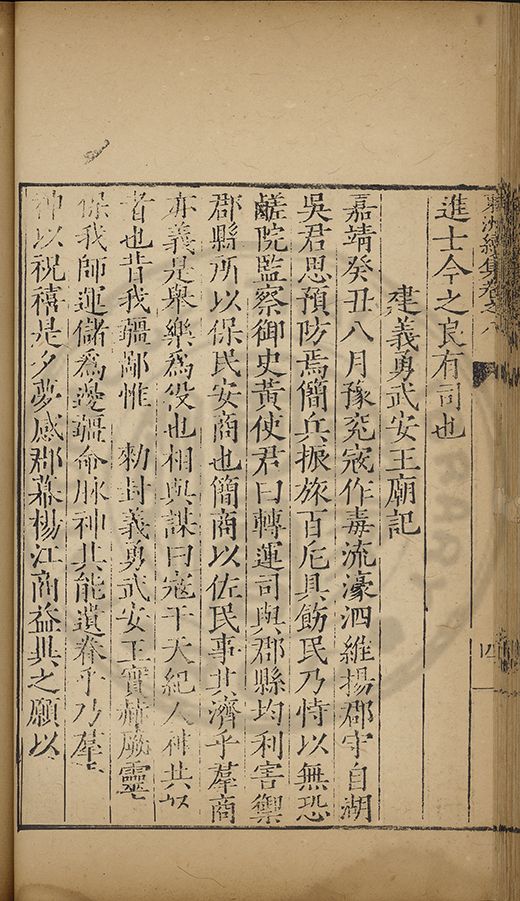 東洲續集卷之八
四
進士今之良有司也
建義勇武安王廟記
嘉靖癸丑八月豫兖寇作毒流濠泗維揚郡守自湖
吳君思預防焉簡兵振旅百戹具飭民乃恃以無恐
鹺院監察御史黃使君曰轉運司與郡縣均利害禦
郡縣所以保民安商也簡商以佐民事其濟乎羣商
亦義是舉樂爲役也相與謀曰寇干天紀人神共奴
者也昔我疆鄙惟 勑封義勇武安王實赫厥靈
保我師運儲爲邊疆命脉神其能遺眷乎乃羣
神以祝禧是夕夢感郡幕楊江商益異之願以